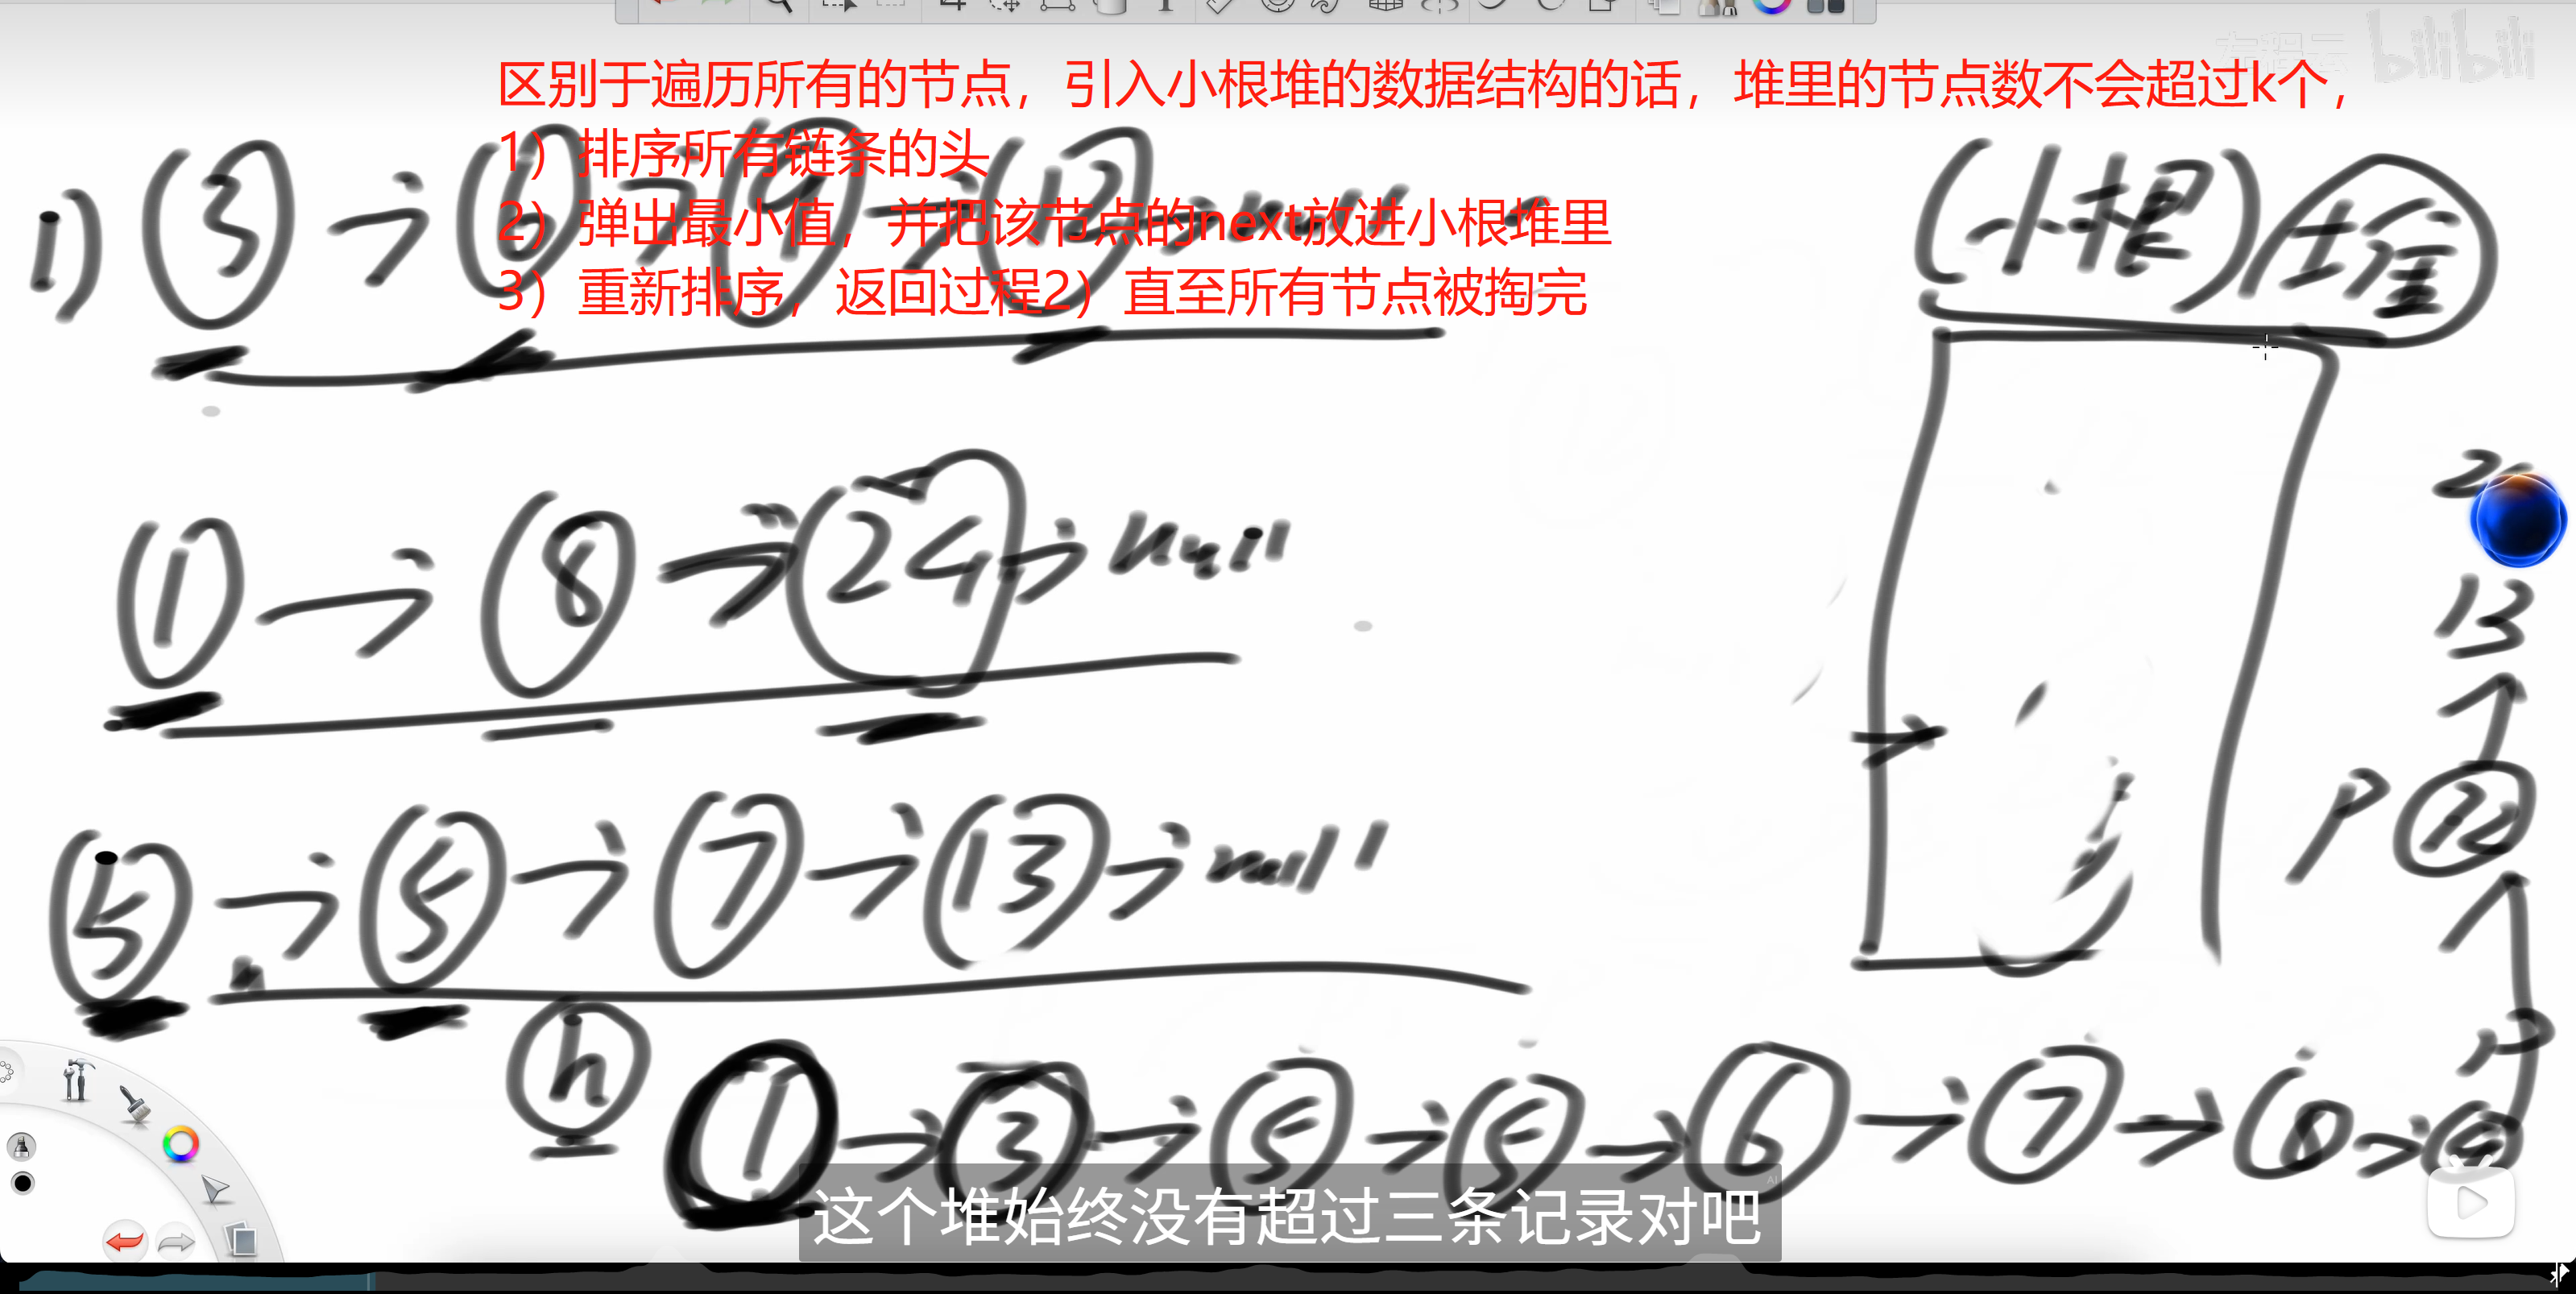 左程云 bilibili
区别于遍历所有的节点，引入小根堆的数据结构的话，堆里的节点数不会超过k个，
1）排序所有链条的头
2）弹出最小值，并把该节点的next放进小根堆里
3）重新排序，返回过程2）直至所有节点被掏完
1) 3 → 6 → 9 → 12 → null
(小根)堆
1 → 8 → 24 → null
13
P 12
5 → 5 → 7 → 13 → null
P
h 1 → 3 → 5 → 5 → 6 → 7 → 8 → 9
AI
这个堆始终没有超过三条记录对吧